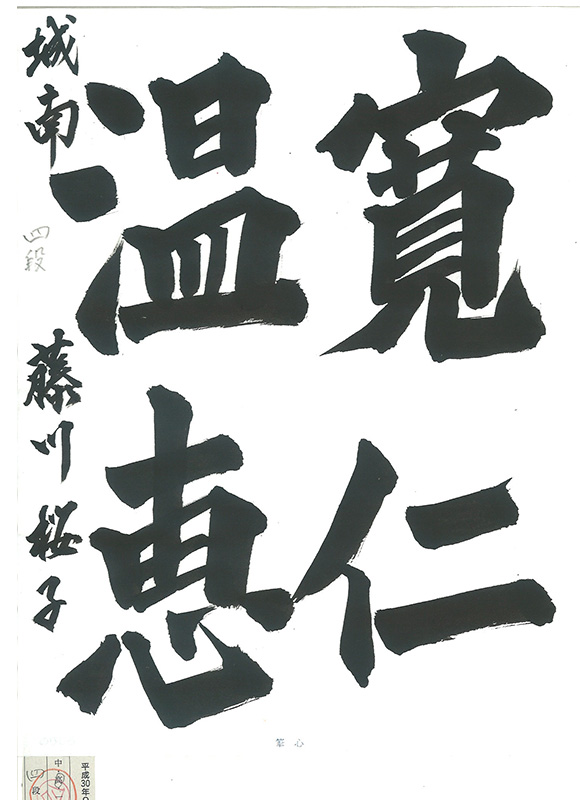 寛仁
温恵
城南 四段 藤川桜子
心筆
平成30年
中
四段